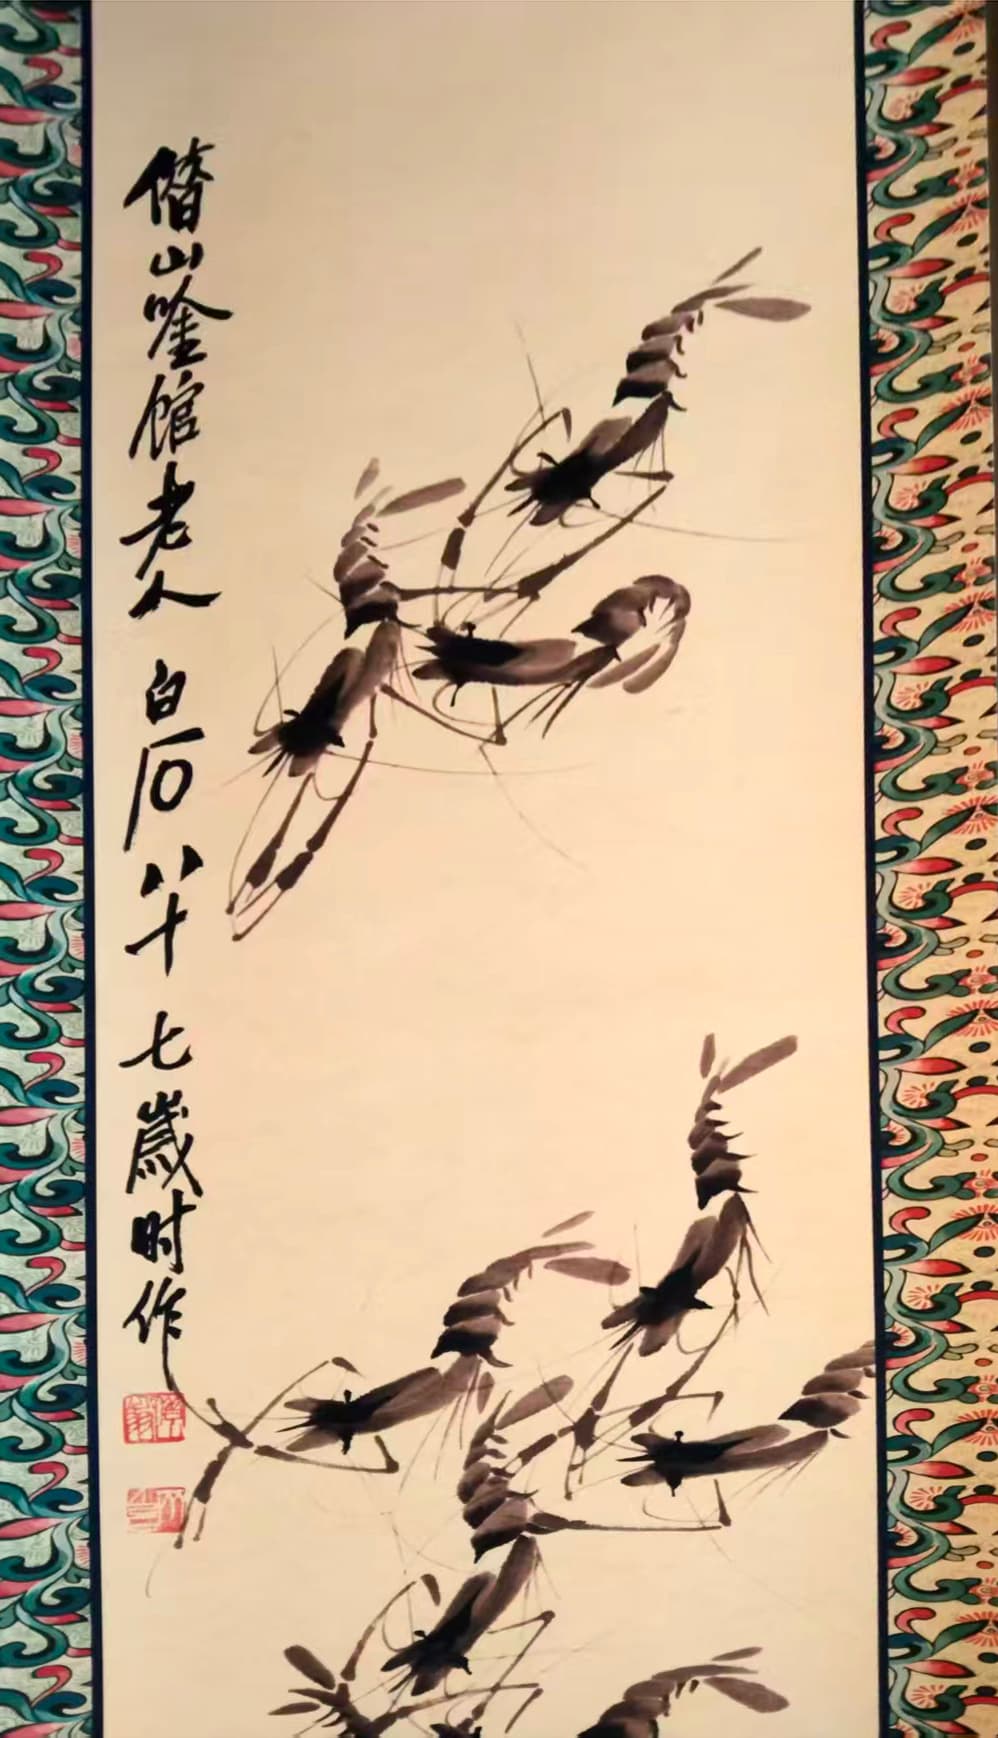 借山唫館老人白石八十七歲时作